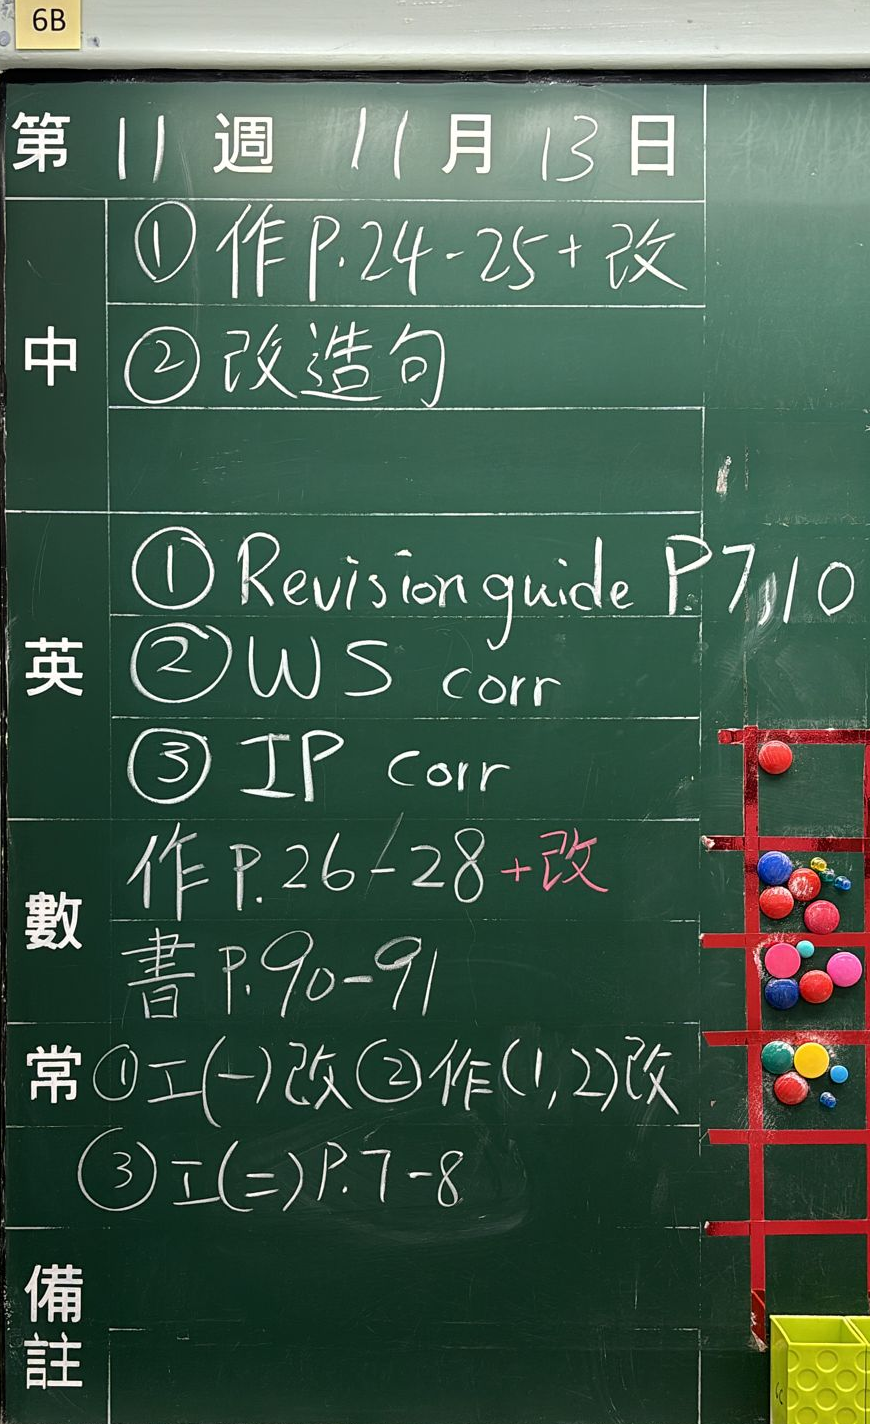 6B
第 11 週 11 月 13 日
中
① 作 P.24-25 + 改
② 改造句
英
① Revision guide P.7,10
② WS corr
③ IP corr
數
作 P.26-28 + 改
書 P.90-91
常 ① 工(一)改 ② 作(1,2)改
③ 工(二) P.7-8
備註